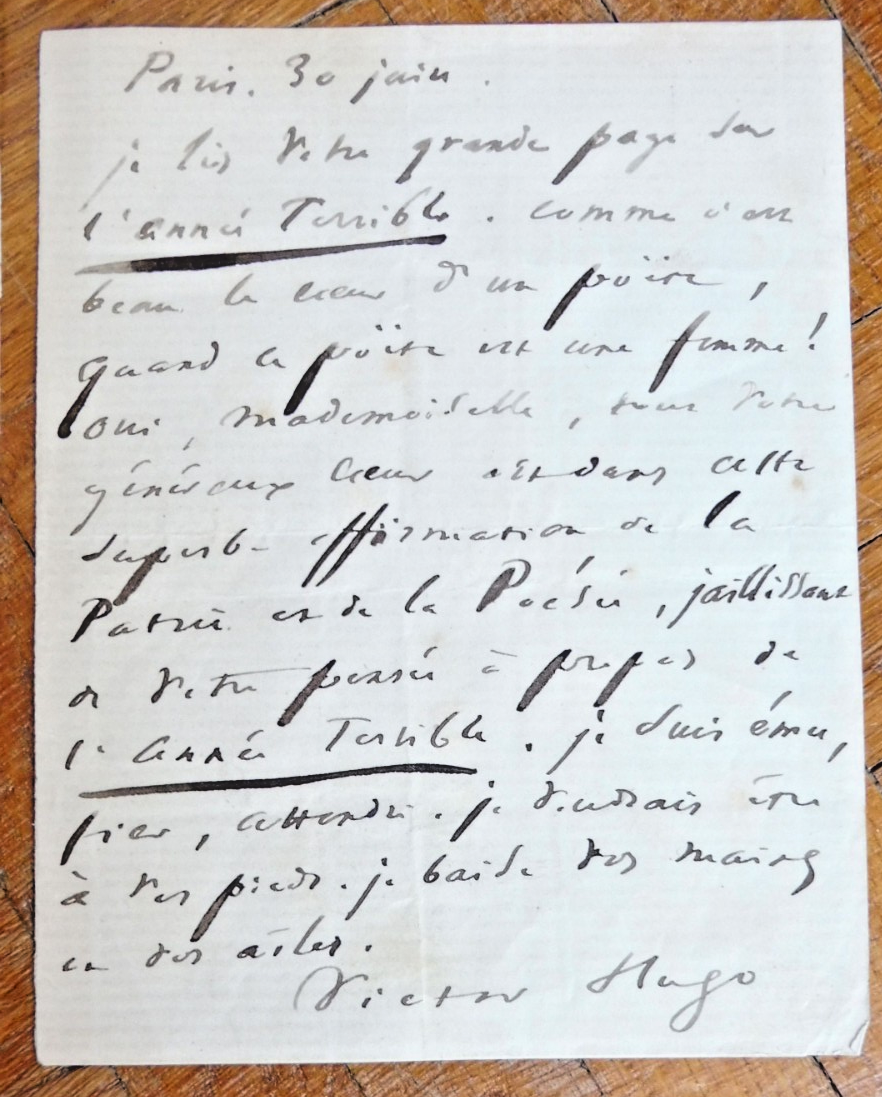 Paris. 30 juin.
je lis votre grande page sur
l'année Terrible. Comme c'est
beau le cœur d'un poëte,
quand ce poëte est une femme!
oui, mademoiselle, tout votre
généreux cœur est dans cette
superbe affirmation de la
Patrie et de la Poésie, jaillissant
de votre pensée à propos de
l'année Terrible. je suis ému,
fier, attendri. je voudrais être
à vos pieds. je baise vos mains
et vos ailes.
Victor Hugo